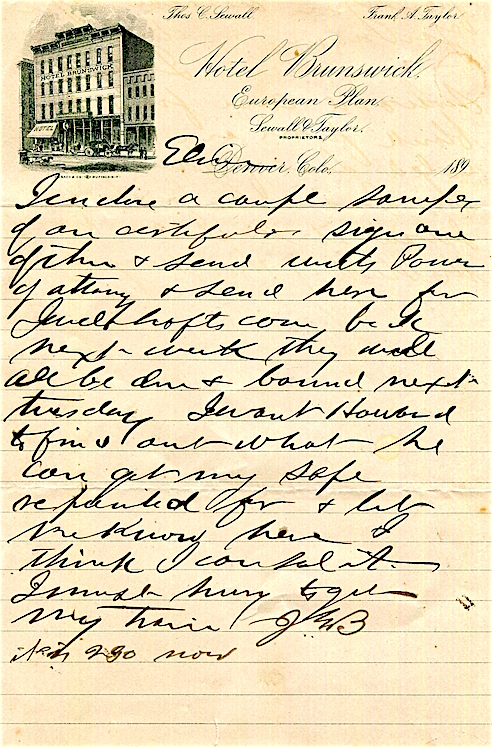 Thos. C. Sewall. Frank A. Taylor.
HOTEL BRUNSWICK
HOTEL
Hotel Brunswick.
European Plan.
Sewall & Taylor.
PROPRIETORS.
Denver, Colo. 189
I enclose a couple samples
of our certificates sign one
of them & send with Power
of attorny & send here for
will come back
next week they will
all be done & bound next
tuesday I want Howard
to find out what he
can get my safe
repainted for & let
me know here &
think I can sel it
I must hurry to get
my train JGB
it is 2 30 now